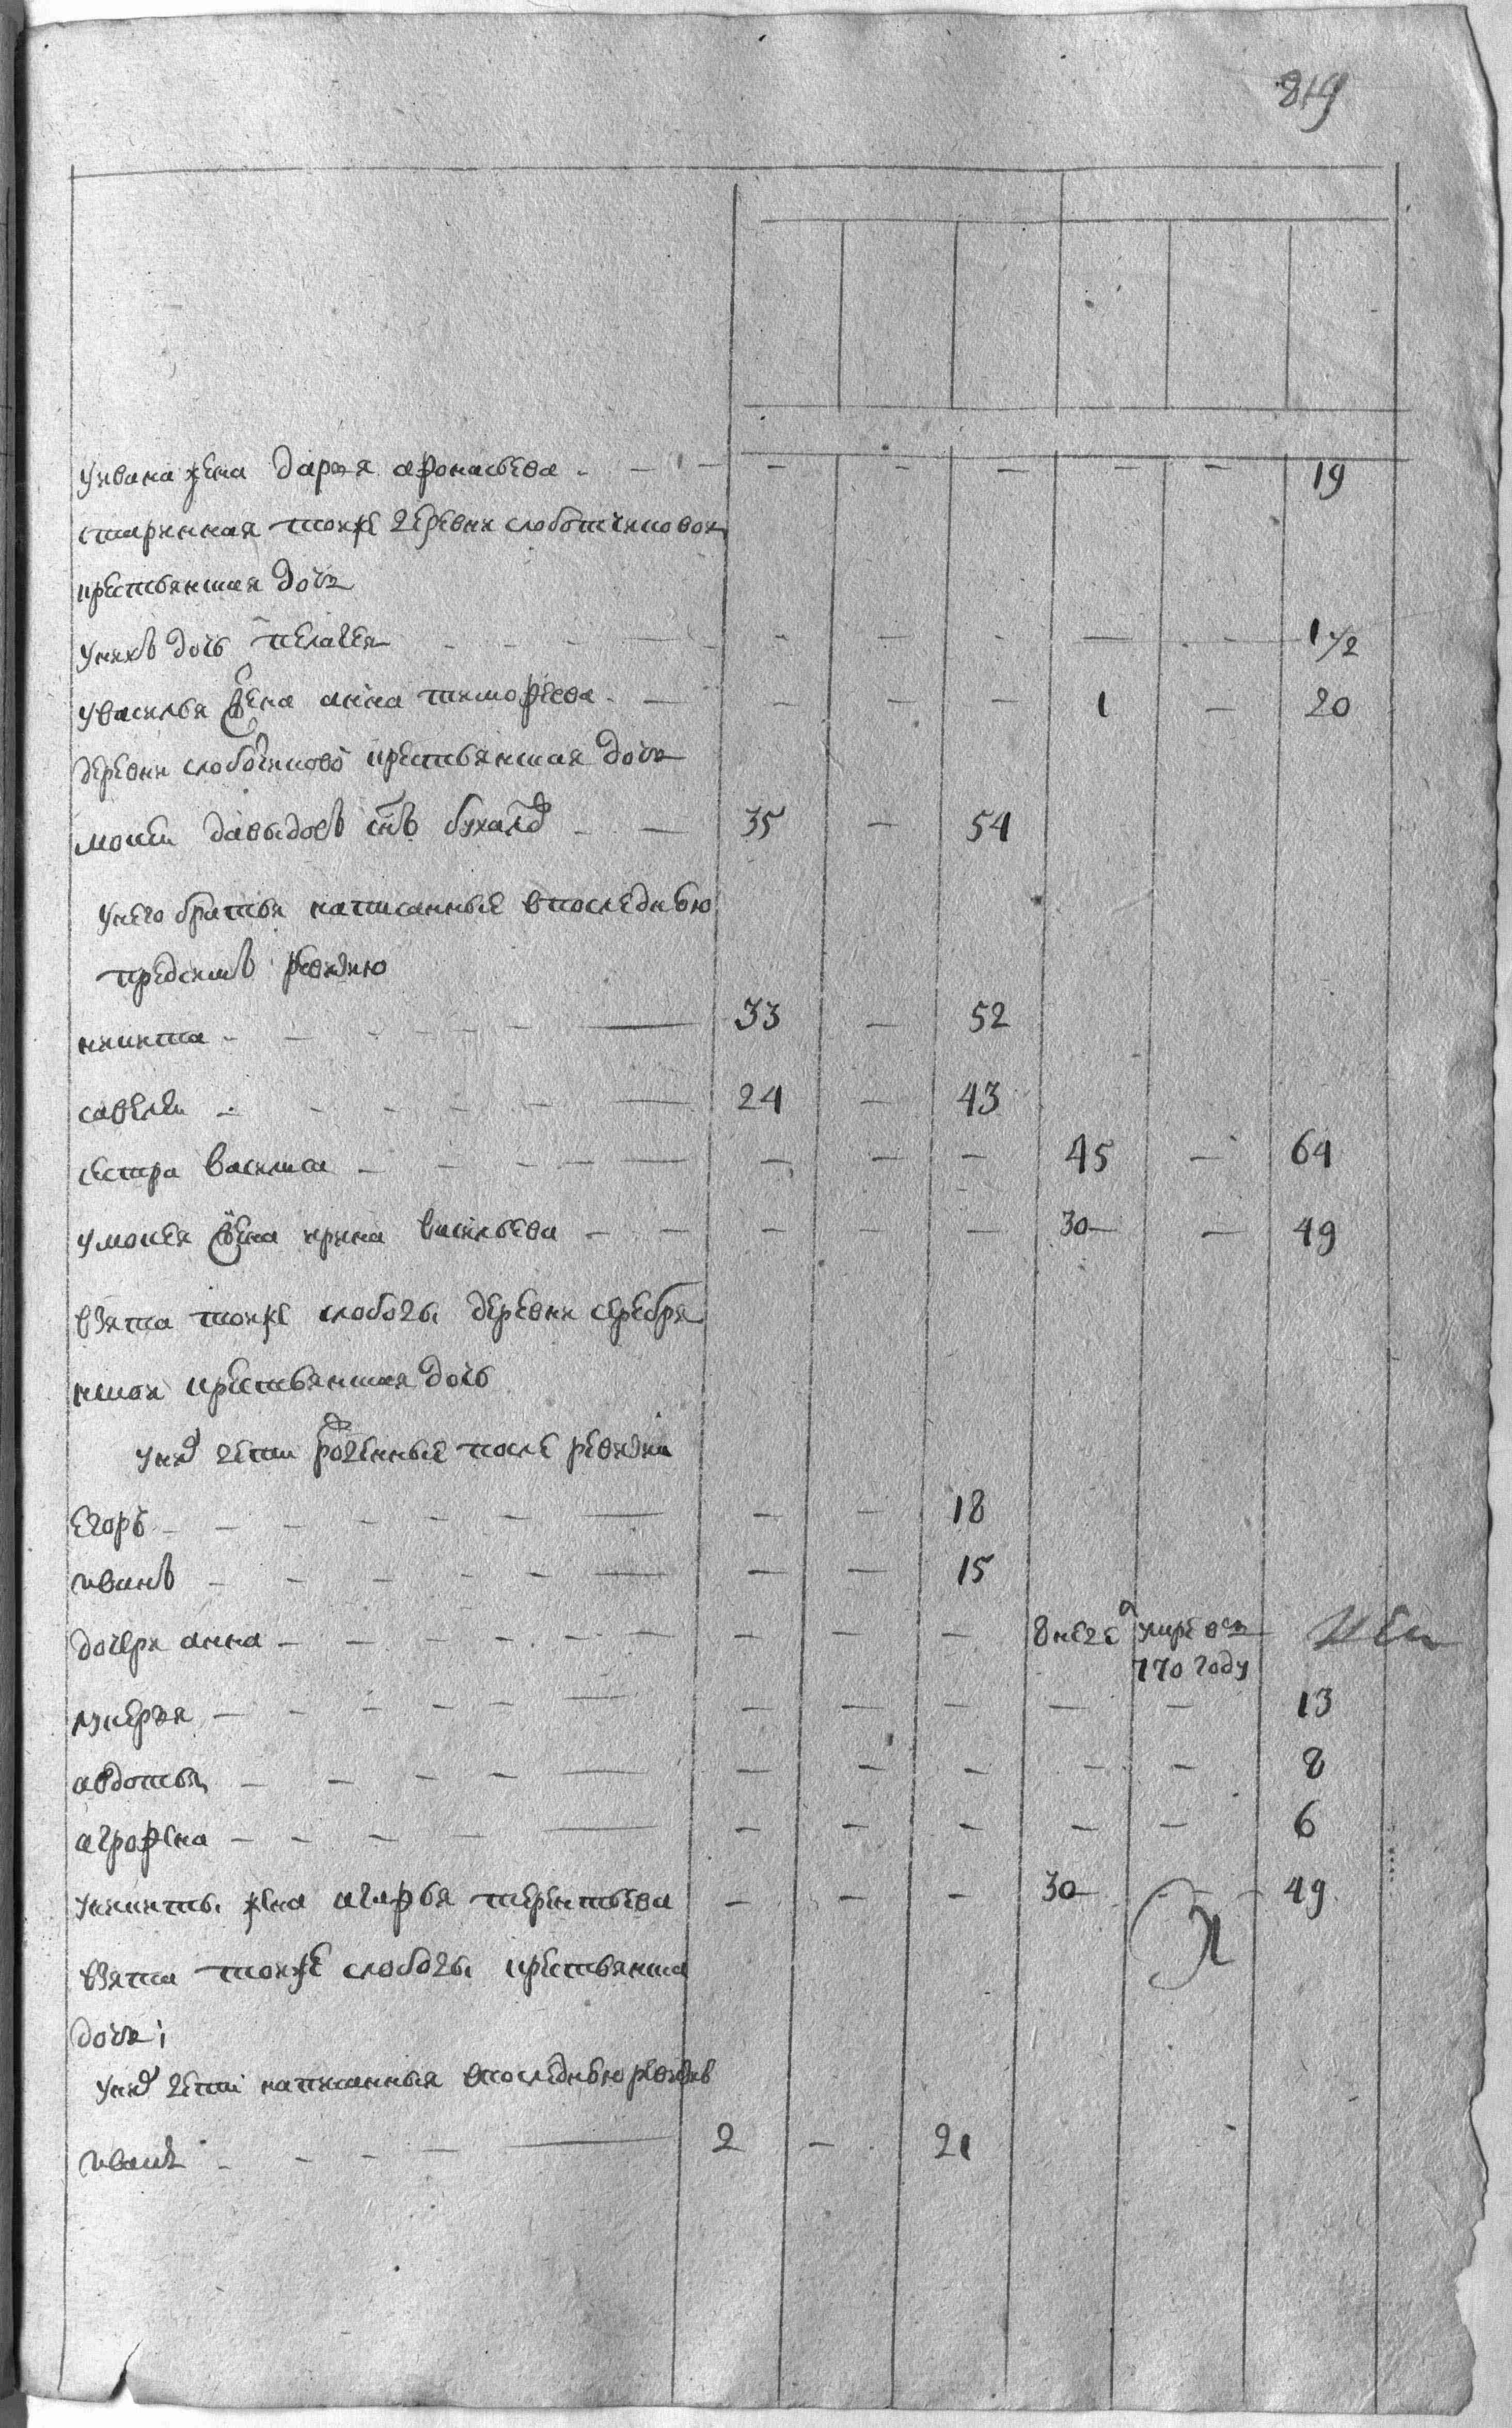 819
у ивана жена дарья афонасьева - - - - - - - - 19
старинная тоиже деревни слоботчиковои
крестьянская дочь
у нихъ дочь пелагея - - - - - - - - - 1 1/2
у василья жена анна тимофеева - - - - - 1 - 20
деревни слобочиково крестьянская дочь
мосеи давыдовъ снъ - - 35 - 54
у него братья написанные в последнюю
предсимъ ревизию
никита - - - - - - 33 - 52
савелеи - - - - - - 24 - 43
сестра василиса - - - - - - - - 45 - 64
у мосея жена ирина васильева - - - - - 30 - 49
взята тоиже слободы деревни серебря
нскои крестьянская дочь
у них дети рожденные после ревизии
егоръ - - - - - - - - - 18
иванъ - - - - - - - - 15
дочери анна - - - - - - - - - в неде умре в
770 году
лукерья - - - - - - - - - - - 13
авдотья - - - - - - - - - - 8
аграфена - - - - - - - - - - 6
у никиты жена агафья терентьева - - - 30 - - 49
взята тоиже слободы крестьянска
дочь
у них дети написанныя в последнюю ревизию
иванъ - - - - - 2 - 21